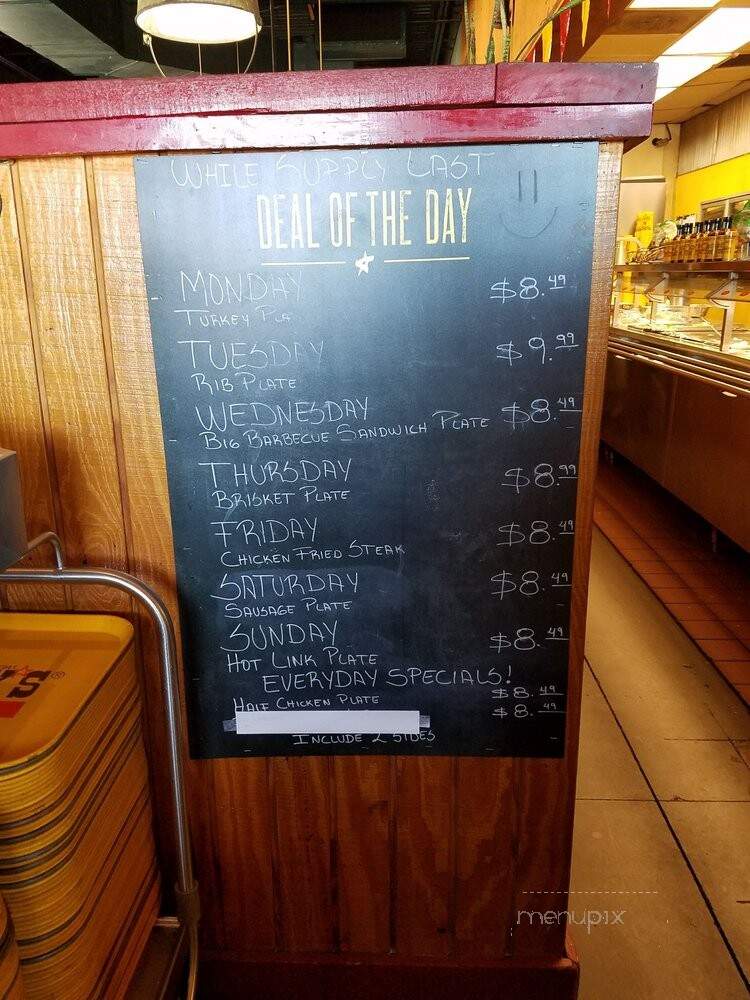 WHILE SUPPLY LAST
DEAL OF THE DAY
MONDAY $8.49
TURKEY PLA
TUESDAY $9.99
RIB PLATE
WEDNESDAY $8.49
BIG BARBECUE SANDWICH PLATE
THURSDAY $8.99
BRISKET PLATE
FRIDAY $8.49
CHICKEN FRIED STEAK
SATURDAY $8.49
SAUSAGE PLATE
SUNDAY $8.49
HOT LINK PLATE
EVERYDAY SPECIALS!
HALF CHICKEN PLATE $8.49
$8.49
INCLUDE 2 SIDES
'S®
menupix